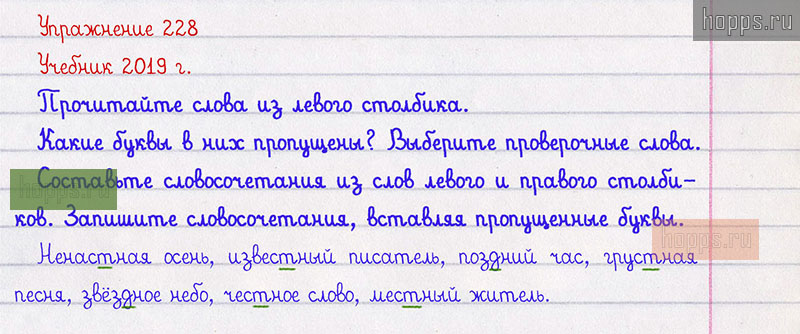 Упражнение 228
hopps.ru
Учебник 2019 г.
Прочитайте слова из левого столбика.
Какие буквы в них пропущены? Выберите проверочные слова.
Составьте словосочетания из слов левого и правого столби-
hopps.ru
ков. Запишите словосочетания, вставляя пропущенные буквы.
hopps.ru
Ненастная осень, известный писатель, поздний час, грустная
песня, звёздное небо, честное слово, местный житель.